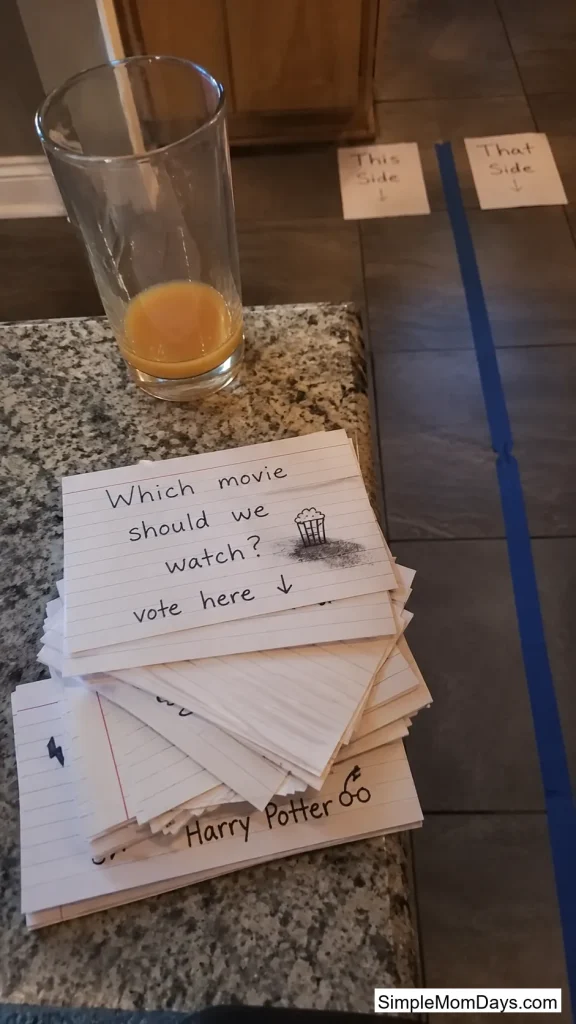 This
Side
↓
That
Side
↓
Which movie
should we
watch?
vote here ↓
Harry Potter
SimpleMomDays.com